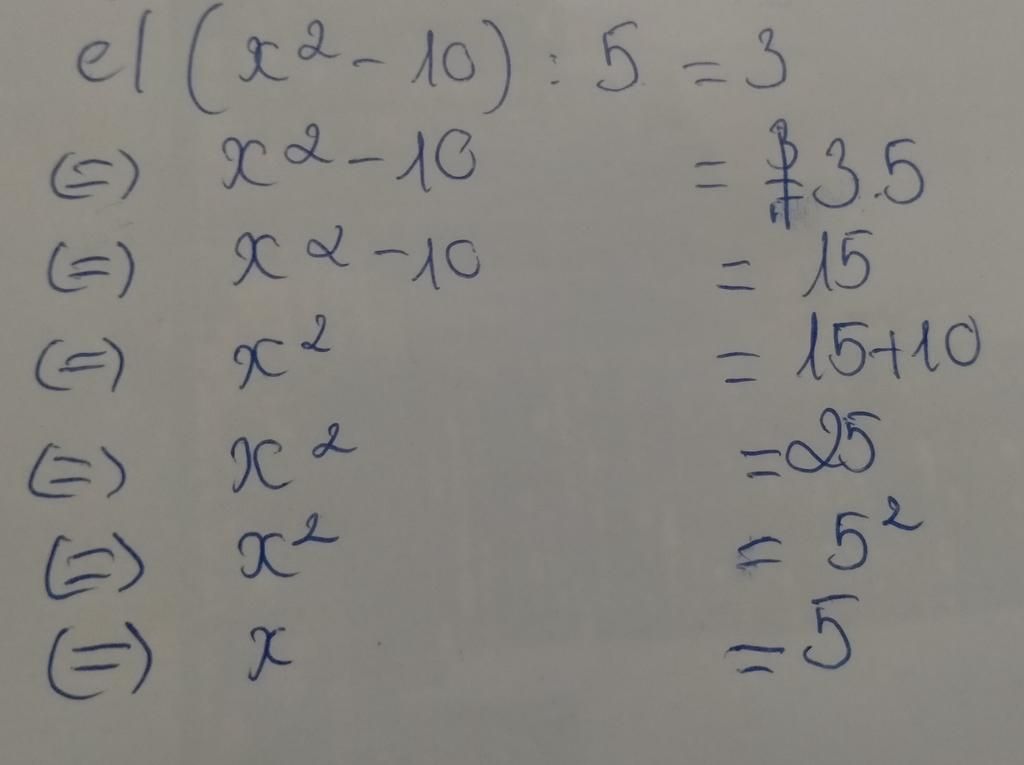 e/ (x² - 10) : 5 = 3
(=) x² - 10 = 3.5
(=) x² - 10 = 15
(=) x² = 15+10
(=) x² = 25
(=) x² = 5²
(=) x = 5